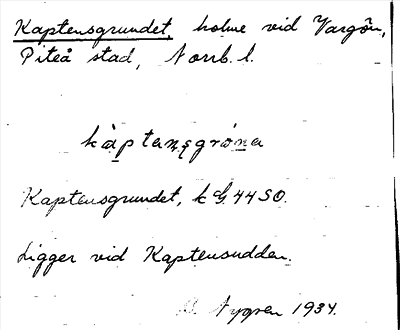 Kaptensgrundet, holme vid Vargön,
Piteå stad, Norrb. l.
kàptensgróna
Kaptensgrundet, k G 44 SO.
Ligger vid Kaptensudden.
Nygren 1934.